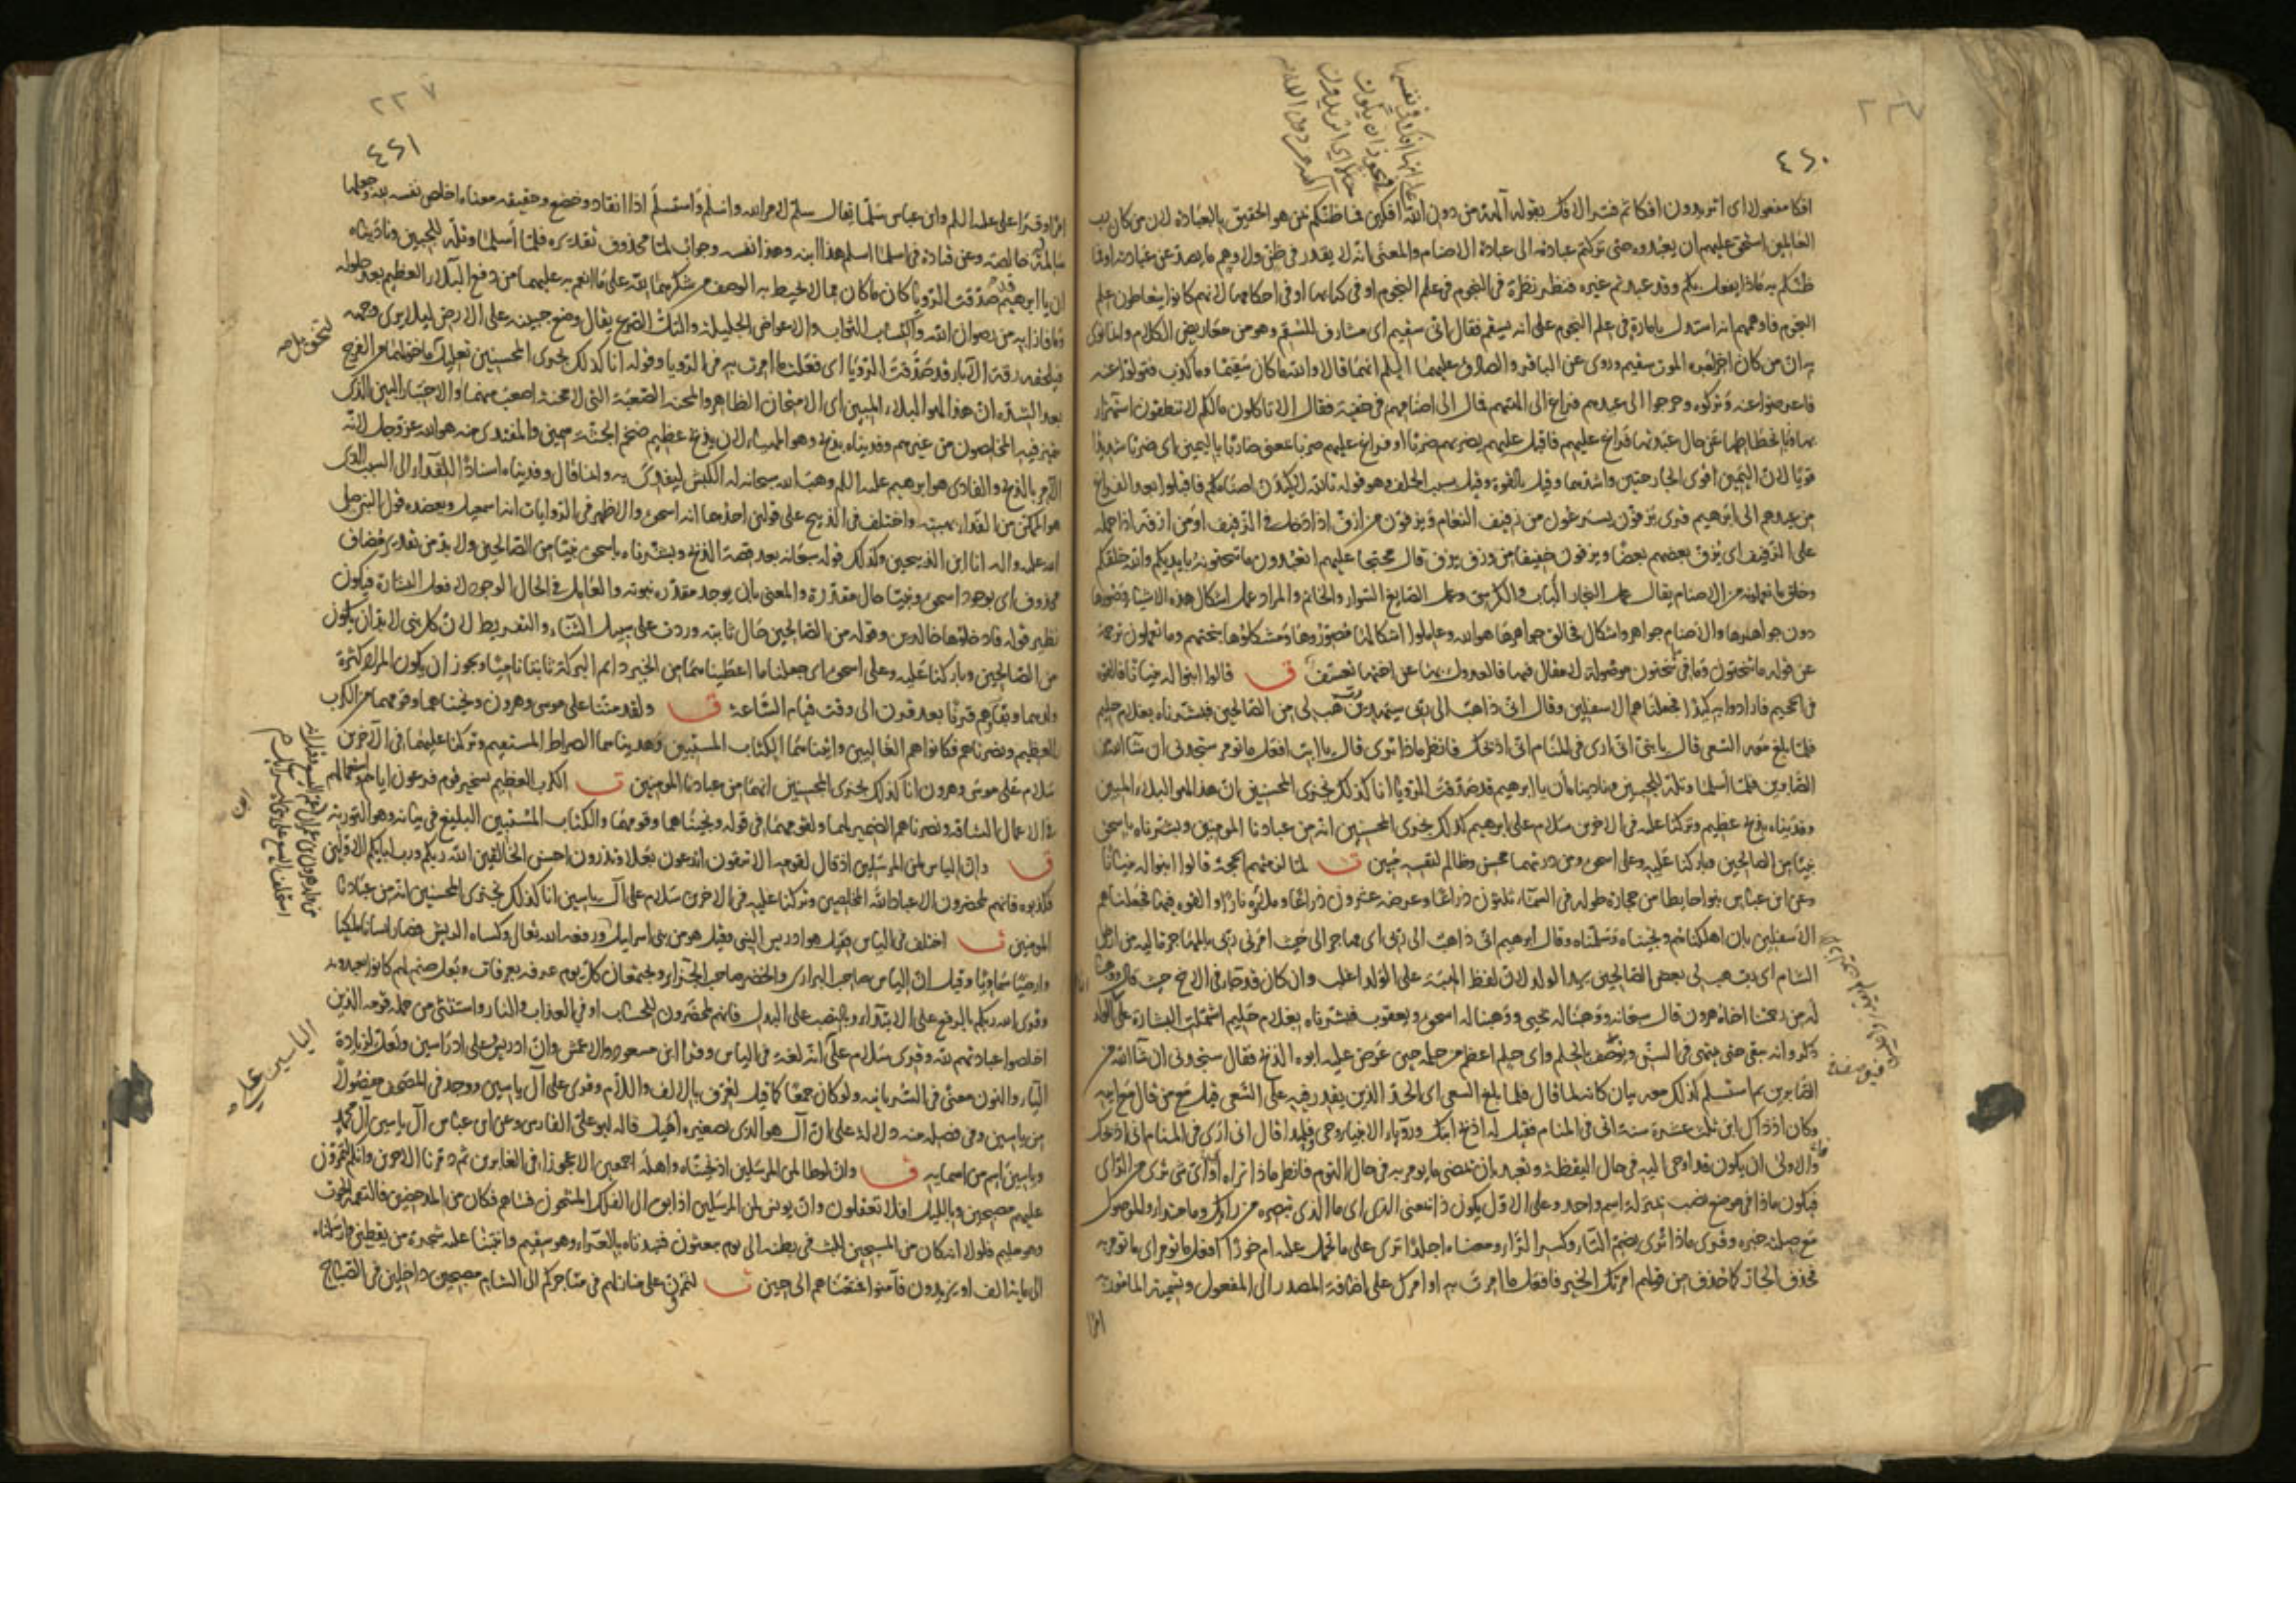 ٤٢٠
افكا مفعولا اى اتريدون افكا ثم فسر الافك بقوله آلهة من دون الله افكين فما ظنكم بمن هو الحقيق بالعبادة لان من كان رب
العالمين استحق عليهم ان يعبدوه حتى تركتم عبادته الى عبادة الاصنام والمعنى انه لا يقدر فى ظن ولا وهم ما يصد عن عبادته او فما
ظنكم به ماذا يفعل بكم وقد عبدتم غيره فنظر نظرة فى النجوم فى علم النجوم او فى كتابها او فى احكامها لانهم كانوا يتعاطون علم
النجوم فاوهمهم انه استدل بامارة فى علم النجوم على انه يسقم فقال انى سقيم اى مشارف للسقم وهو من معاريض الكلام
ان من كان آخر امره الموت سقيم وروى عن الباقر والصادق عليهما السلم انهما قالا والله ما كان سقيما وما كذب فتولوا عنه
فاعرضوا عنه وتركوه وخرجوا الى عيدهم فراغ الى آلهتهم فمال الى اصنامهم فى خفية فقال الا تاكلون مالكم لا تنطقون استهزاء
بها وبانحطاطها عن حال عبدتها فراغ عليهم فاقبل عليهم يضربهم ضربا او فراغ عليهم ضربا بمعنى ضاربا باليمين اى ضربا شديدا
قويا لان اليمين اقوى الجارحتين واشدهما وقيل بالقوة وقيل بسبب الحلف وهو قوله تالله لاكيدن اصنامكم فاقبلوا بعد الفراغ
من عيدهم الى ابرهيم قرى يزفون يسرعون من زفيف النعام ويزفون من ازف اذا دخل فى الزفيف او من ازفه اذا حمله
على الزفيف اى يزف بعضهم بعضا ويزفون خفيفا من وزف يزف قال محتجا عليهم اتعبدون ما تنحتونه بايديكم والله خلقكم
وخلق ما تعملونه من الاصنام يقال عمل النجار الباب والكرسى وعمل الصايغ السوار والخاتم والمراد عمل اشكال هذه الاشياء وصورها
دون جواهرها والاصنام جواهر واشكال فخالق جواهرها هو الله وعاملوا اشكالها مصوروها ومشكلوها بنحتهم وما تعملون ترجمة
عن قوله ما تنحتون وما فى تنحتون موصولة لا مقال فيها فالعدول بها عن اختها تعسف ق قالوا ابنوا له بنيانا فالقوه
فى الجحيم فارادوا به كيدا فجعلناهم الاسفلين وقال انى ذاهب الى ربى سيهدين رب هب لى من الصالحين فبشرناه بغلام حليم
فلما بلغ معه السعى قال يا بنى انى ارى فى المنام انى اذبحك فانظر ماذا ترى قال يا ابت افعل ما تومر ستجدنى ان شاء الله من
الصابرين فلما أسلما وتله للجبين وناديناه أن يا ابرهيم قد صدقت الرؤيا انا كذلك نجزى المحسنين ان هذا لهو البلاء المبين
وفديناه بذبح عظيم وتركنا عليه فى الاخرين سلام على ابرهيم كذلك نجزى المحسنين انه من عبادنا المومنين وبشرناه باسحق
نبيا من الصالحين وباركنا عليه وعلى اسحق ومن ذريتهما محسن وظالم لنفسه مبين ت لما لزمتهم الحجة قالوا ابنوا له بنيانا
وعن ابن عباس بنوا حايطا من حجارة طوله فى السماء ثلثون ذراعا وعرضه عشرون ذراعا وملئوه نارا والقوه فيها فجعلناهم
الاسفلين بان اهلكناهم ونجيناه وسلمناه وقال ابرهيم انى ذاهب الى ربى اى مهاجر الى حيث امرنى ربى بالمهاجرة اليه من ارض
الشام اى رب هب لى بعض الصالحين يريد الولد لان لفظ الهبة على الولد اغلب وان كان قد جاء فى الاخ حيث قال ووهبنا
له من رحمتنا اخاه هرون قال سبحانه ووهبنا له يحيى ووهبنا له اسحق ويعقوب فبشرناه بغلام حليم اشتملت البشارة على الولد
ذكر وانه يبقى حتى ينتهى فى السن ويوصف بالحلم واى حليم اعظم من حلمه حين عرض عليه ابوه الذبح فقال ستجدنى ان شاء الله من
الصابرين ثم استسلم لذلك معه بيان كانه لما قال فلما بلغ السعى اى الحد الذى يقدر فيه على السعى قيل مع من قال مع ابيه
وكان اذ ذاك ابن ثلث عشرة سنة انى فى المنام فقيل له اذبح ابنك ورؤياء الانبياء وحى فلهذا قال انى ارى فى المنام انى اذبحك
والاولى ان يكون قد اوحى اليه فى حال اليقظة وتعبد بان يمضى ما يومر به فى حال النوم فانظر ماذا تراه او اى شى ترى من الراى
فيكون ماذا فى موضع نصب بمنزلة اسم واحد وعلى الاول يكون ذا بمعنى الذى اى ما الذى تبصره من رايك وما مبتدا والموصول
مع صلته خبره وقرى ماذا ترى بضم التاء وكسر الراء ومعناه اجلدا ترى على ما تحمل عليه ام خورا افعل ما تومر اى ما تومر به
فحذف الجار كما حذف من قولهم امرتك الخير فافعل ما امرت به او امرك على اضافة المصدر الى المفعول وتسمية المامور به
امرا
٢٢٧
٤٢١
امرا وقرا على عليه السلم وابن عباس سلما يقال سلم لامر الله واسلم واستسلم اذا انقاد وخضع وحقيقة معناه اخلص نفسه لله وجعلها
سالمة له خالصة وعن قتادة فى اسلما اسلم هذا ابنه وهذا نفسه وجواب لما محذوف تقديره فلما أسلما وتله للجبين وناديناه
ان يا ابرهيم قد صدقت الرؤيا كان ما كان مما لا يحيط به الوصف من شكرهما لله على ما انعم به عليهما من دفع البلاء العظيم بعد حلوله
وما فازا به من رضوان الله واكتساب الثواب والاعواض الجليلة والتل الصرع يقال وضع جبينه على الارض ليلا يرى وجهه
فيلحقه رقة الآباء قد صدقت الرؤيا اى فعلت ما امرت به فى الرؤيا وقوله انا كذلك نجزى المحسنين تعليل لما خولهما من الفرج
بعد الشدة ان هذا لهو البلاء المبين اى الامتحان الظاهر والمحنة الصعبة التى لا محنة اصعب منها والاختبار البين الذى
يتميز فيه المخلصون من غيرهم وفديناه بذبح وهو المهيا لان يذبح عظيم ضخم الجثة سمين والمفتدى منه هو الله عز وجل لانه
الآمر بالذبح والفادى هو ابرهيم عليه السلم وهب الله سبحانه له الكبش ليفدى به وانما قال وفديناه اسنادا للفداء الى السبب الذى
هو الممكن من الفداء بهبته واختلف فى الذبيح على قولين احدهما انه اسحق والاظهر فى الروايات انه اسمعيل ويعضده قول النبى صلى
الله عليه واله انا ابن الذبيحين وكذلك قوله سبحانه بعد قصة الذبح وبشرناه باسحق نبيا من الصالحين ولا بد من تقدير مضاف
محذوف اى بوجود اسحق ونبيا حال مقدرة والمعنى بان يوجد مقدرة نبوته والعامل فى الحال الوجود لا فعل البشارة فيكون
نظير قوله فادخلوها خالدين وقوله من الصالحين حال ثانية وردت على سبيل الثناء والتقريظ لان كل نبى لا بد ان يكون
من الصالحين وباركنا عليه وعلى اسحق اى جعلنا ما اعطيناهما من الخير دايم البركة ثابتا ناميا ويجوز ان يكون المراد كثرة
ولدهما وبقاءهم قرنا بعد قرن الى وقت قيام الساعة ق ولقد مننا على موسى وهرون ونجيناهما وقومهما من الكرب
العظيم ونصرناهم فكانوا هم الغالبين واتيناهما الكتاب المستبين وهديناهما الصراط المستقيم وتركنا عليهما فى الآخرين
سلام على موسى وهرون انا كذلك نجزى المحسنين انهما من عبادنا المومنين ت الكرب العظيم تسخير قوم فرعون اياهم واستعمالهم
فى الاعمال الشاقة ونصرناهم الضمير لهما ولقومهما فى قوله ونجيناهما وقومهما والكتاب المستبين البليغ فى بيانه وهو التورية
ق وان الياس لمن المرسلين اذ قال لقومه الا تتقون اتدعون بعلا وتذرون احسن الخالقين الله ربكم ورب ابائكم الاولين
فكذبوه فانهم لمحضرون الا عباد الله المخلصين وتركنا عليه فى الاخرين سلام على آل ياسين انا كذلك نجزى المحسنين انه من عبادنا
المومنين ت اختلف فى الياس فقيل هو ادريس النبى وقيل هو من بنى اسرايل ورفعه الله تعالى وكساه الريش فصار انسانا ملكيا
وارضيا سماويا وقيل ان الياس صاحب البرارى والخضر صاحب الجزاير ويجتمعان كل يوم عرفة بعرفات وبعل صنم لهم كانوا يعبدونه
وقرى الله ربكم بالرفع على الابتداء وبالنصب على البدل فانهم لمحضرون للحساب او فى العذاب والنار واستثنى من جملة قومه الذين
اخلصوا عبادتهم لله وقرى سلام على انه لغة فى الياس وقرا ابن مسعود والاعمش وان ادريس وعلى ادراسين ولعل لزيادة
الياء والنون معنى فى السريانية ولو كان جمعا كما قيل لعرف بالالف واللام وقرى على آل ياسين ووجد فى المصحف مفصولا
من ياسين وفى فصله منه دلالة على ان آل هو الذى تصغيره اهيل قاله ابو على الفارسى وعن ابن عباس آل ياسين آل محمد
وياسين اسم من اسمايه ق وان لوطا لمن المرسلين اذ نجيناه واهله اجمعين الا عجوزا فى الغابرين ثم دمرنا الاخرين وانكم لتمرون
عليهم مصبحين وبالليل افلا تعقلون وان يونس لمن المرسلين اذ ابق الى الفلك المشحون فساهم فكان من المدحضين فالتقمه الحوت
وهو مليم فلولا انه كان من المسبحين للبث فى بطنه الى يوم يبعثون فنبذناه بالعراء وهو سقيم وانبتنا عليه شجرة من يقطين وارسلناه
الى ماية الف او يزيدون فآمنوا فمتعناهم الى حين ت لتمرون على منازلهم فى متاجركم الى الشام مصبحين داخلين فى الصباح